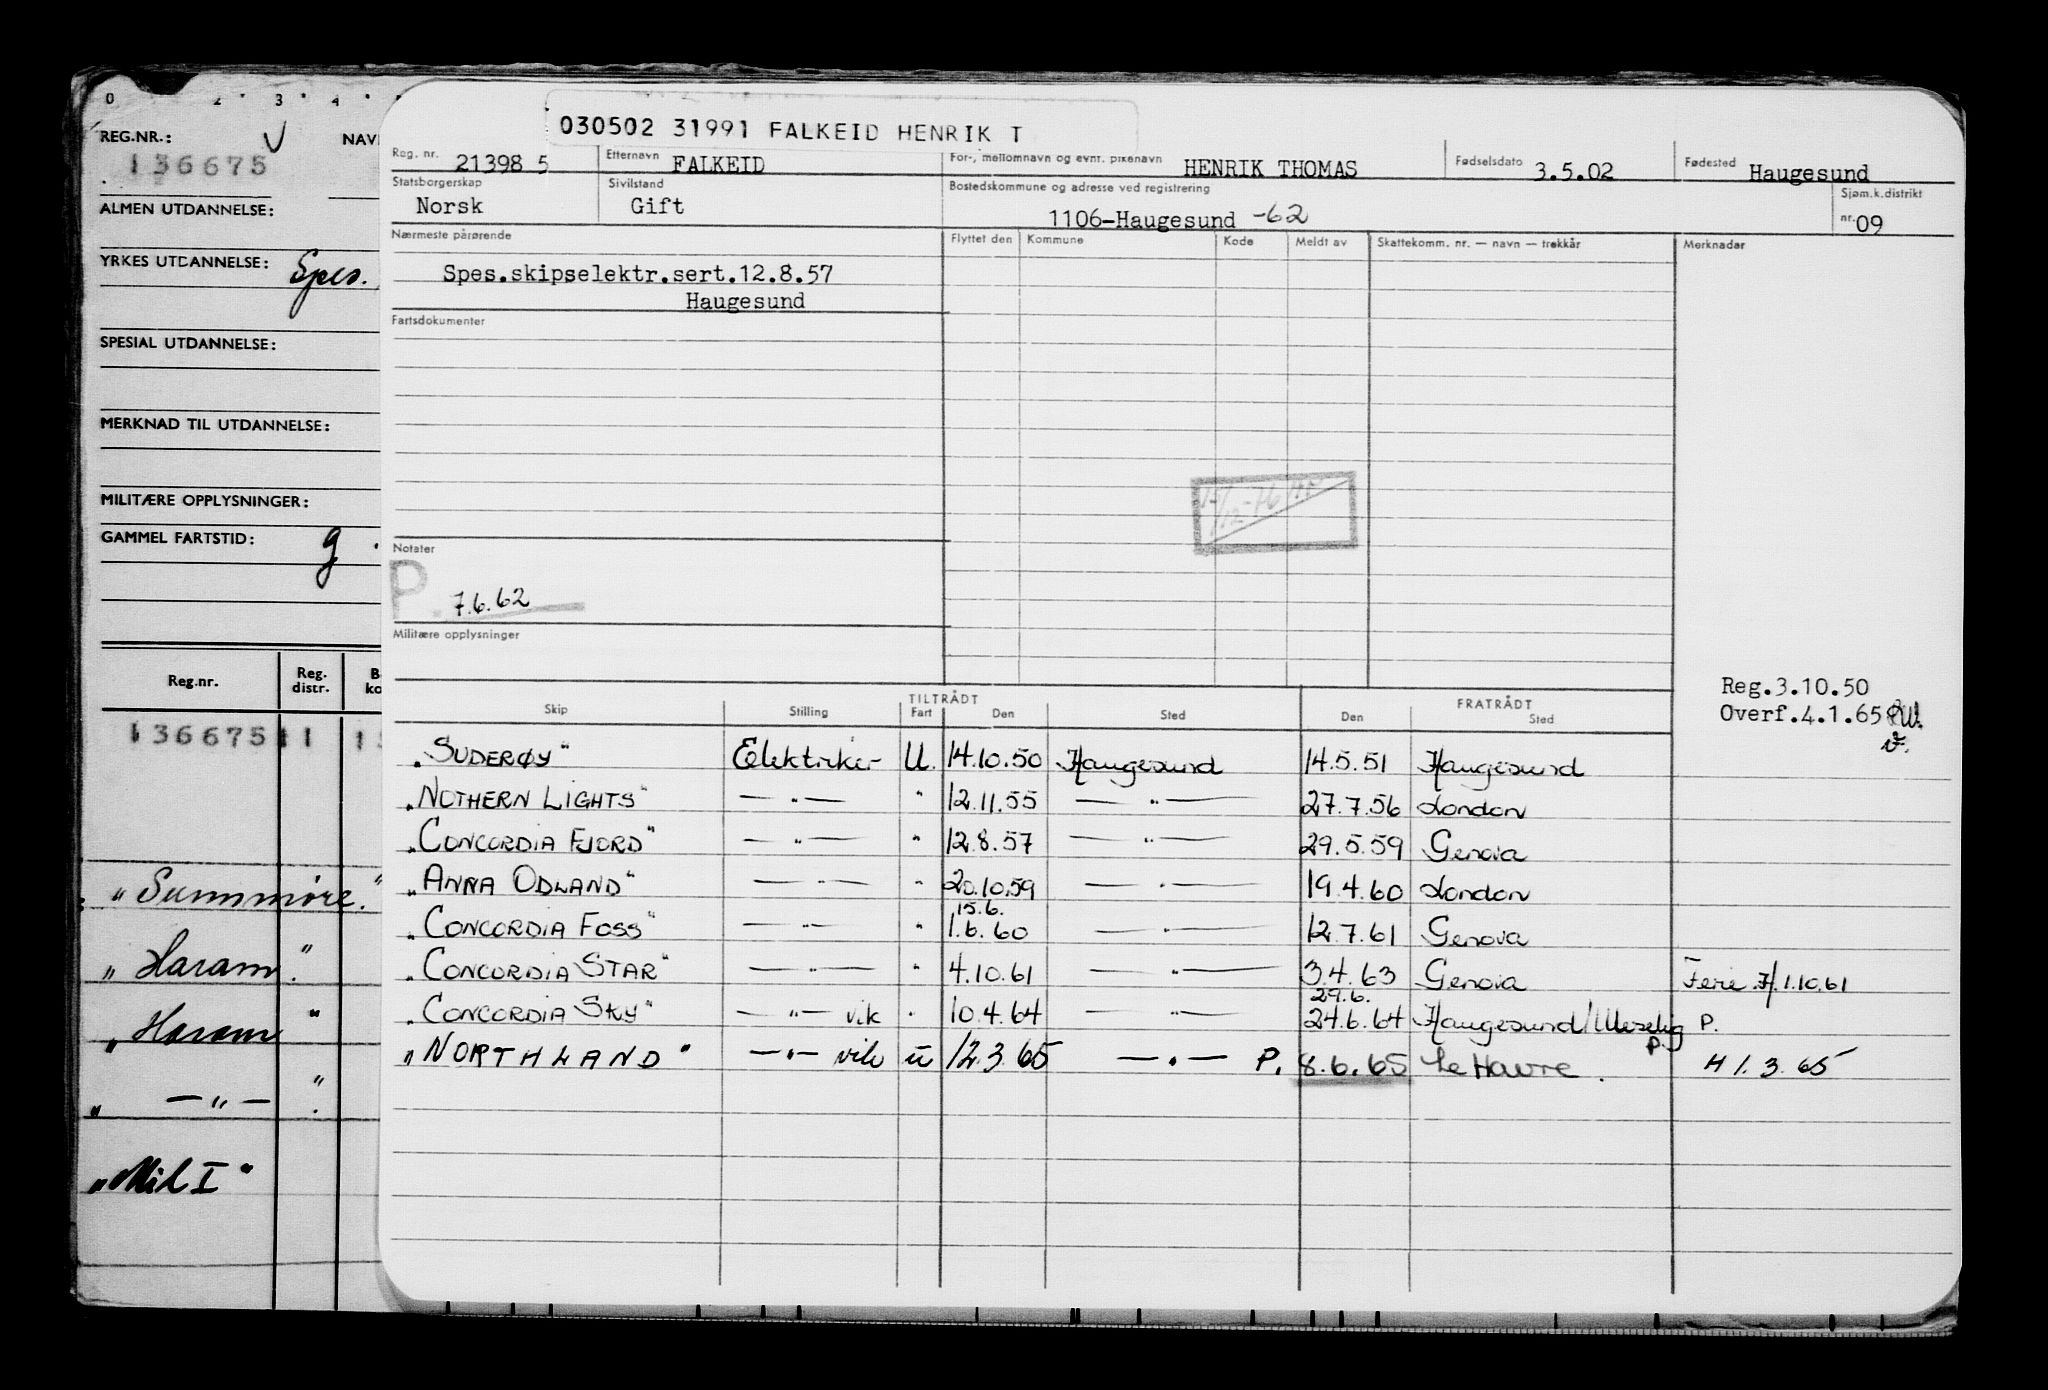 0 2 3 4
REG.NR.: V NAV
136675
ALMEN UTDANNELSE:
YRKES UTDANNELSE: Spes.
SPESIAL UTDANNELSE:
MERKNAD TIL UTDANNELSE:
MILITÆRE OPPLYSNINGER:
GAMMEL FARTSTID: g.
Reg.nr. Reg. distr. B ko
136675 11 1
"Sunnmöre." "
"Haram "
"Haram "
" —"— "
"Mil I"
030502 31991 FALKEID HENRIK T
Reg. nr. 21398 5 Etternavn FALKEID For-, mellomnavn og evnt. pikenavn HENRIK THOMAS Fødselsdato 3.5.02 Fødested Haugesund
Statsborgerskap Sivilstand Bostedskommune og adresse ved registrering Sjøm.k.distrikt
Norsk Gift 1106-Haugesund -62 nr. 09
Nærmeste pårørende Flyttet den Kommune Kode Meldt av Skattekomm. nr. — navn — trekkår Merknader
Spes.skipselektr.sert.12.8.57
Haugesund
Fartsdokumenter
Notater
P. 7.6.62
Militære opplysninger
Reg.3.10.50
Overf.4.1.65
TILTRÅDT FRATRÅDT
Skip Stilling Fart Den Sted Den Sted
"SUDERØY" Elektriker U. 14.10.50 Haugesund 14.5.51 Haugesund
"NOTHERN LIGHTS" —"— " 12.11.55 —"— 27.7.56 London
"CONCORDIA FJORD" —"— " 12.8.57 —"— 29.5.59 Genova
"ANNA ODLAND" —"— " 20.10.59 —"— 19.4.60 London
15.6.
"CONCORDIA FOSS" —"— " 1.6.60 —"— 12.7.61 Genova
"CONCORDIA STAR" —"— " 4.10.61 —"— 3.4.63 Genova Ferie 7/1.10.61
29.6.
"CONCORDIA SKY" —"— vik " 10.4.64 —"— 24.6.64 Haugesund/ P.
P.
"NORTHLAND" —"— vik u 12.3.65 —"— P. 8.6.65 Le Havre. H 1.3.65